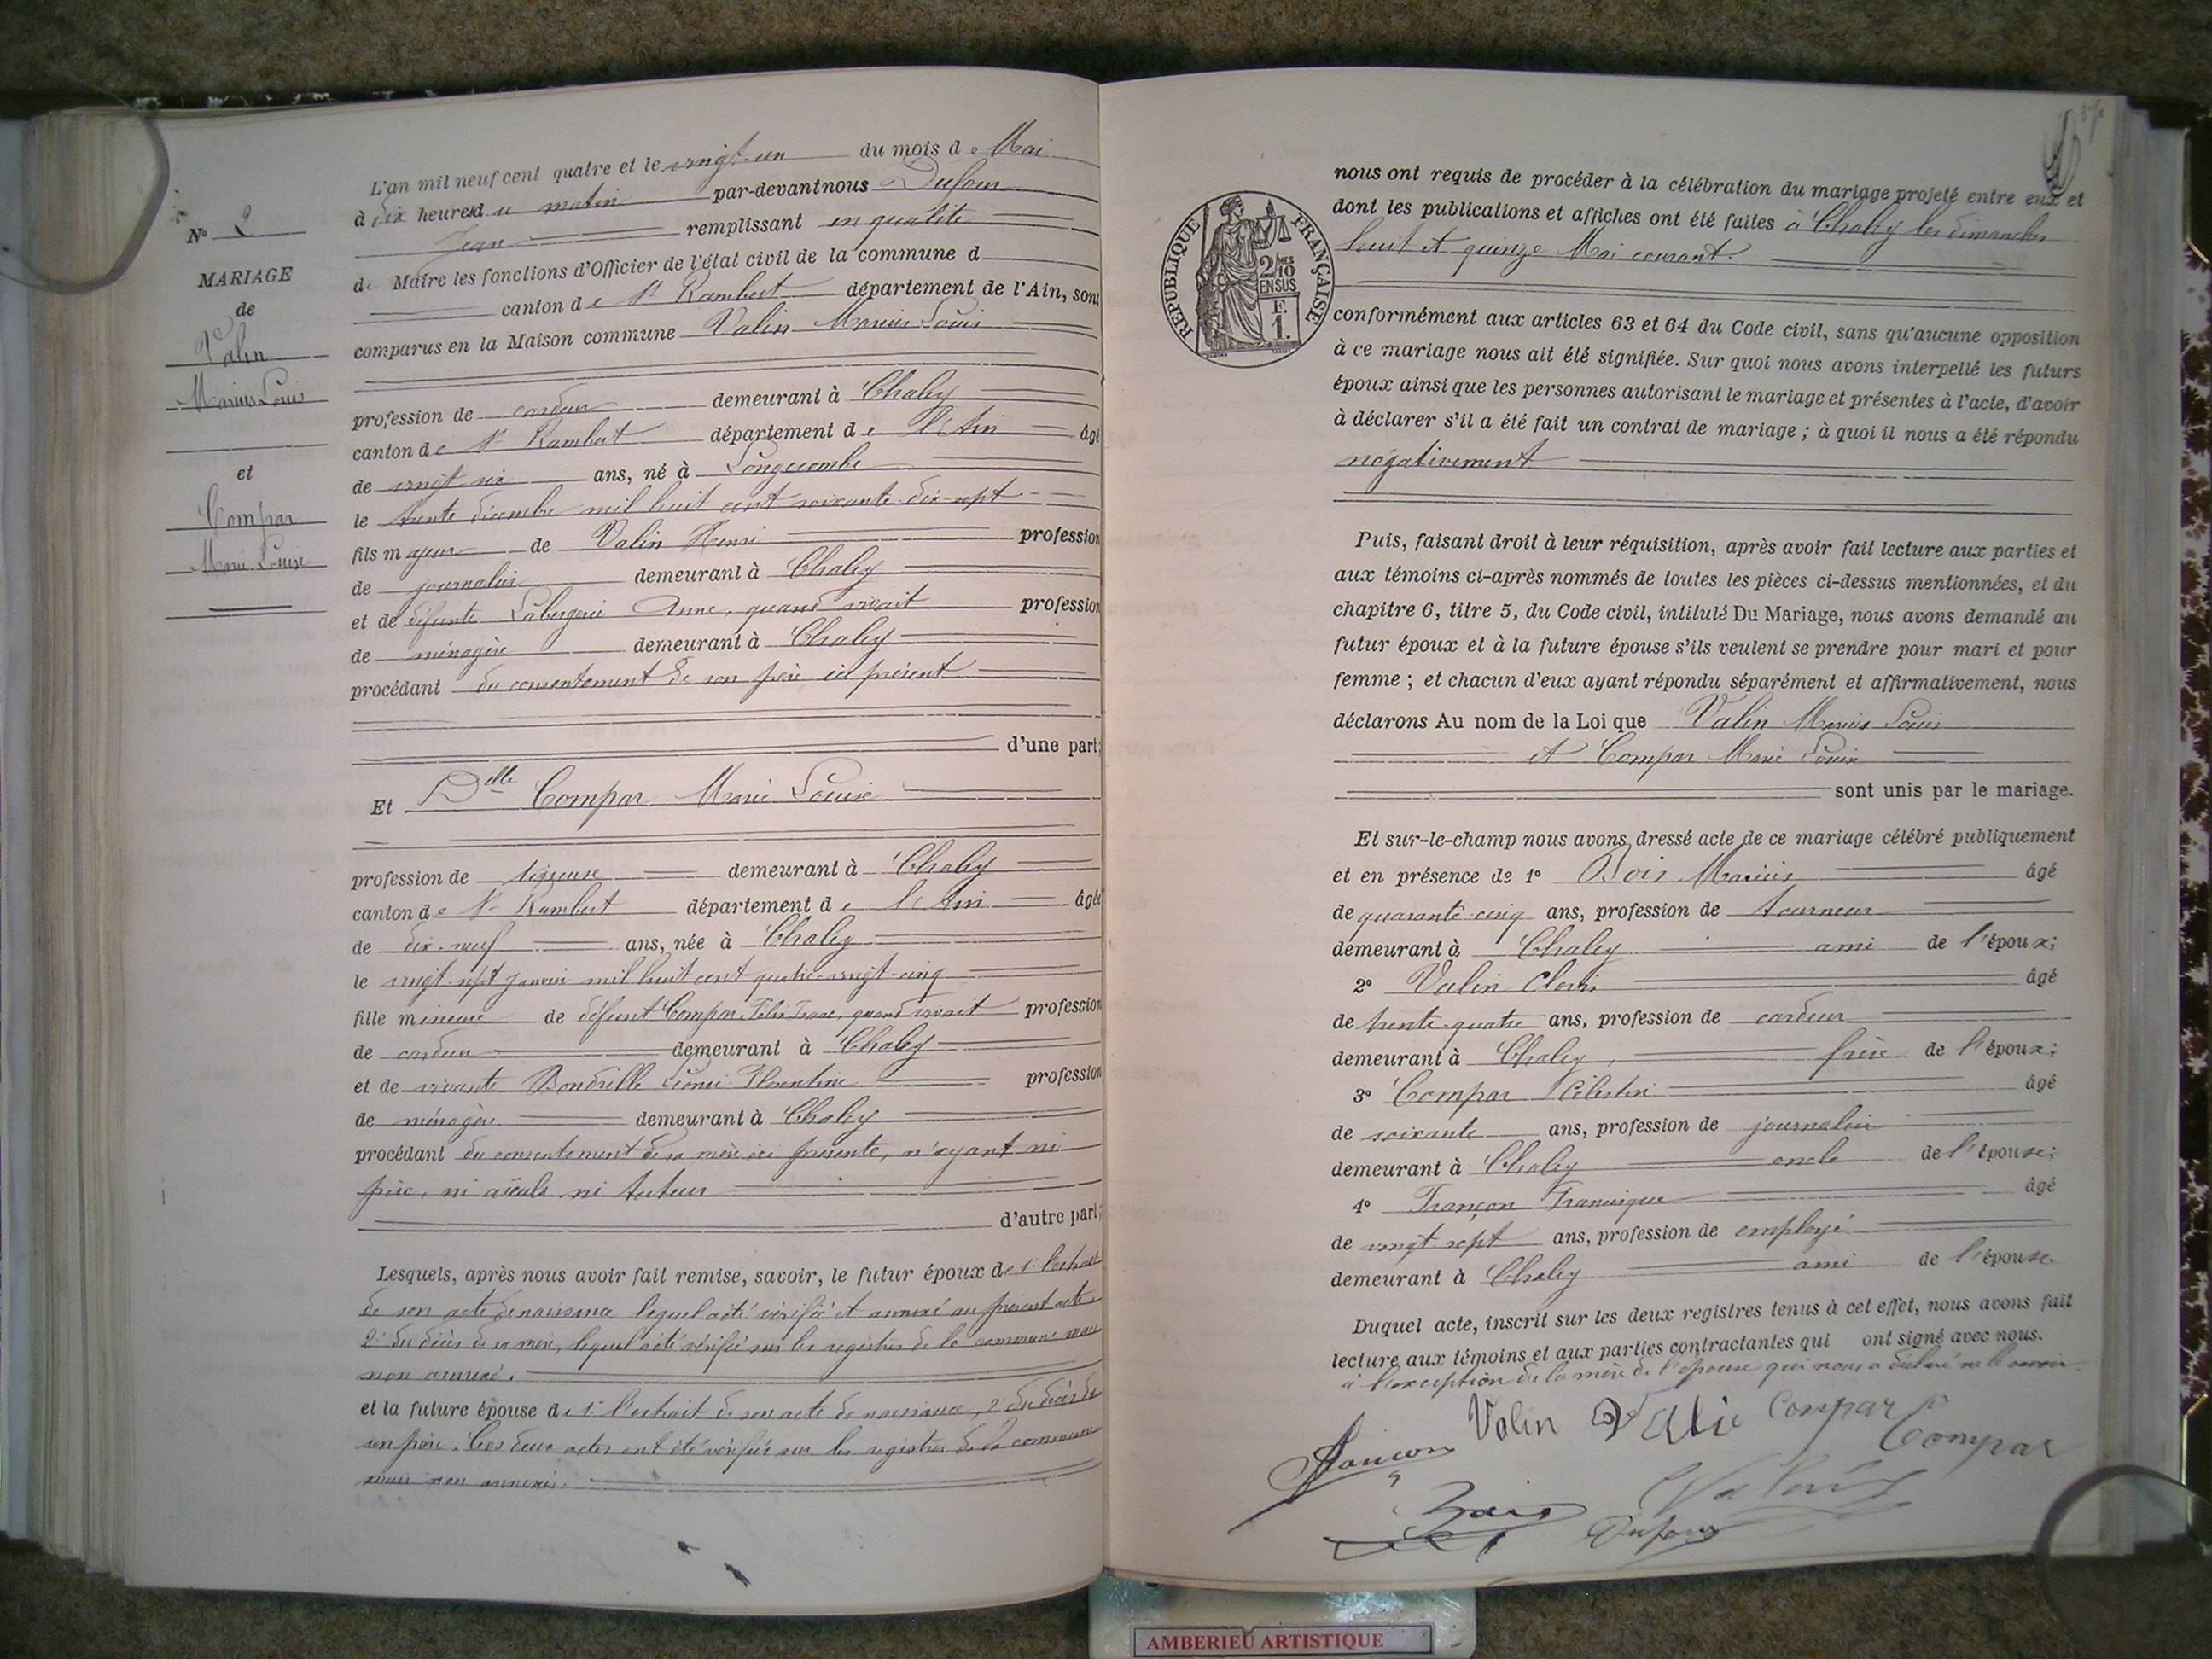 L'an mil neuf cent quatre et le vingt-un du mois de Mai
à dix heures du matin par-devant nous Dufour
Jean remplissant en qualité
de Maire les fonctions d'Officier de l'état civil de la commune d
canton de St Rambert département de l'Ain, sont
comparus en la Maison commune Valin Marius Louis
profession de cardeur demeurant à Chaley
canton de St Rambert département de l'Ain âgé
de vingt-six ans, né à Longecombe
le trente décembre mil huit cent soixante-dix-sept
fils majeur de Valin Henri profession
de journalier demeurant à Chaley
et de défunte Anne, quand vivait profession
de ménagère demeurant à Chaley
procédant du consentement de son père ici présent
d'une part;
Et Delle Compar Marie Louise
profession de demeurant à Chaley
canton de St Rambert département de l'Ain âgée
de dix-neuf ans, née à Chaley
le vingt-sept janvier mil huit cent quatre-vingt-cinq
fille mineure de défunt Compar Félix quand vivait profession
de cardeur demeurant à Chaley
et de vivante Florentine profession
de ménagère demeurant à Chaley
procédant du consentement de sa mère ici présente, n'ayant ni
père, ni aïeuls ni tuteur
d'autre part;
Lesquels, après nous avoir fait remise, savoir, le futur époux de 1° l'extrait
de son acte de naissance lequel a été vérifié et annexé au présent acte,
2° du décès de sa mère, lequel a été vérifié sur les registres de la commune mais
non annexé.
et la future épouse de 1° l'extrait de son acte de naissance, 2° du décès de
son père. Ces deux actes ont été vérifiés sur les registres de la commune
mais non annexés.
N° 2
MARIAGE
de
Valin
Marius Louis
et
Compar
Marie Louise
RÉPUBLIQUE FRANÇAISE
2 MES
10
EN SUS
1 F.
nous ont requis de procéder à la célébration du mariage projeté entre eux et
dont les publications et affiches ont été faites à Chaley les dimanches
huit et quinze Mai courant.
conformément aux articles 63 et 64 du Code civil, sans qu'aucune opposition
à ce mariage nous ait été signifiée. Sur quoi nous avons interpellé les futurs
époux ainsi que les personnes autorisant le mariage et présentes à l'acte, d'avoir
à déclarer s'il a été fait un contrat de mariage ; à quoi il nous a été répondu
négativement
Puis, faisant droit à leur réquisition, après avoir fait lecture aux parties et
aux témoins ci-après nommés de toutes les pièces ci-dessus mentionnées, et du
chapitre 6, titre 5, du Code civil, intitulé Du Mariage, nous avons demandé au
futur époux et à la future épouse s'ils veulent se prendre pour mari et pour
femme ; et chacun d'eux ayant répondu séparément et affirmativement, nous
déclarons Au nom de la Loi que Valin Marius Louis
et Compar Marie Louise
sont unis par le mariage.
Et sur-le-champ nous avons dressé acte de ce mariage célébré publiquement
et en présence de 1° Bois Marius âgé
de quarante-cinq ans, profession de tourneur
demeurant à Chaley ami de l'époux;
2° Valin Clovis âgé
de trente-quatre ans, profession de cardeur
demeurant à Chaley, frère de l'époux;
3° Compar Célestin âgé
de soixante ans, profession de journalier
demeurant à Chaley oncle de l'épouse;
4° Françon Francisque âgé
de vingt-sept ans, profession de employé
demeurant à Chaley ami de l'épouse.
Duquel acte, inscrit sur les deux registres tenus à cet effet, nous avons fait
lecture aux témoins et aux parties contractantes qui ont signé avec nous.
à l'exception de la mère de l'épouse qui nous a déclaré ne le savoir.
Valin Compar
Françon Compar
Bois Dufour
AMBERIEU ARTISTIQUE